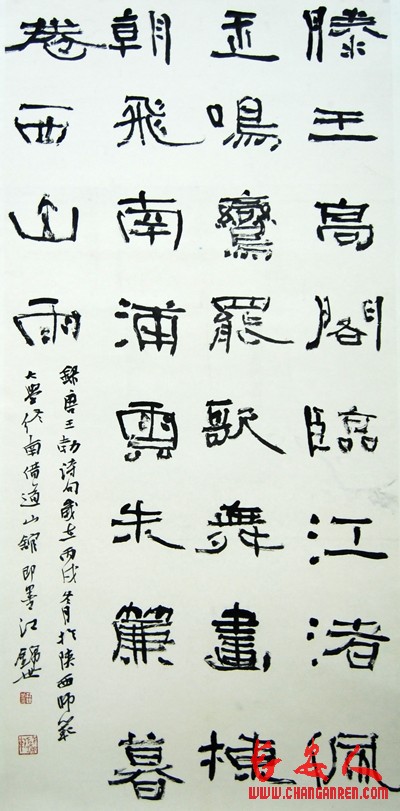 滕王高閣臨江渚佩
玉鳴鸞罷歌舞畫棟
朝飛南浦雲朱簾暮
卷西山雨
錄唐王勃诗句歲在丙戌冬月於陕西師範
大學终南借道山館即墨江錦世
长安人
WWW.CHANGANREN.COM